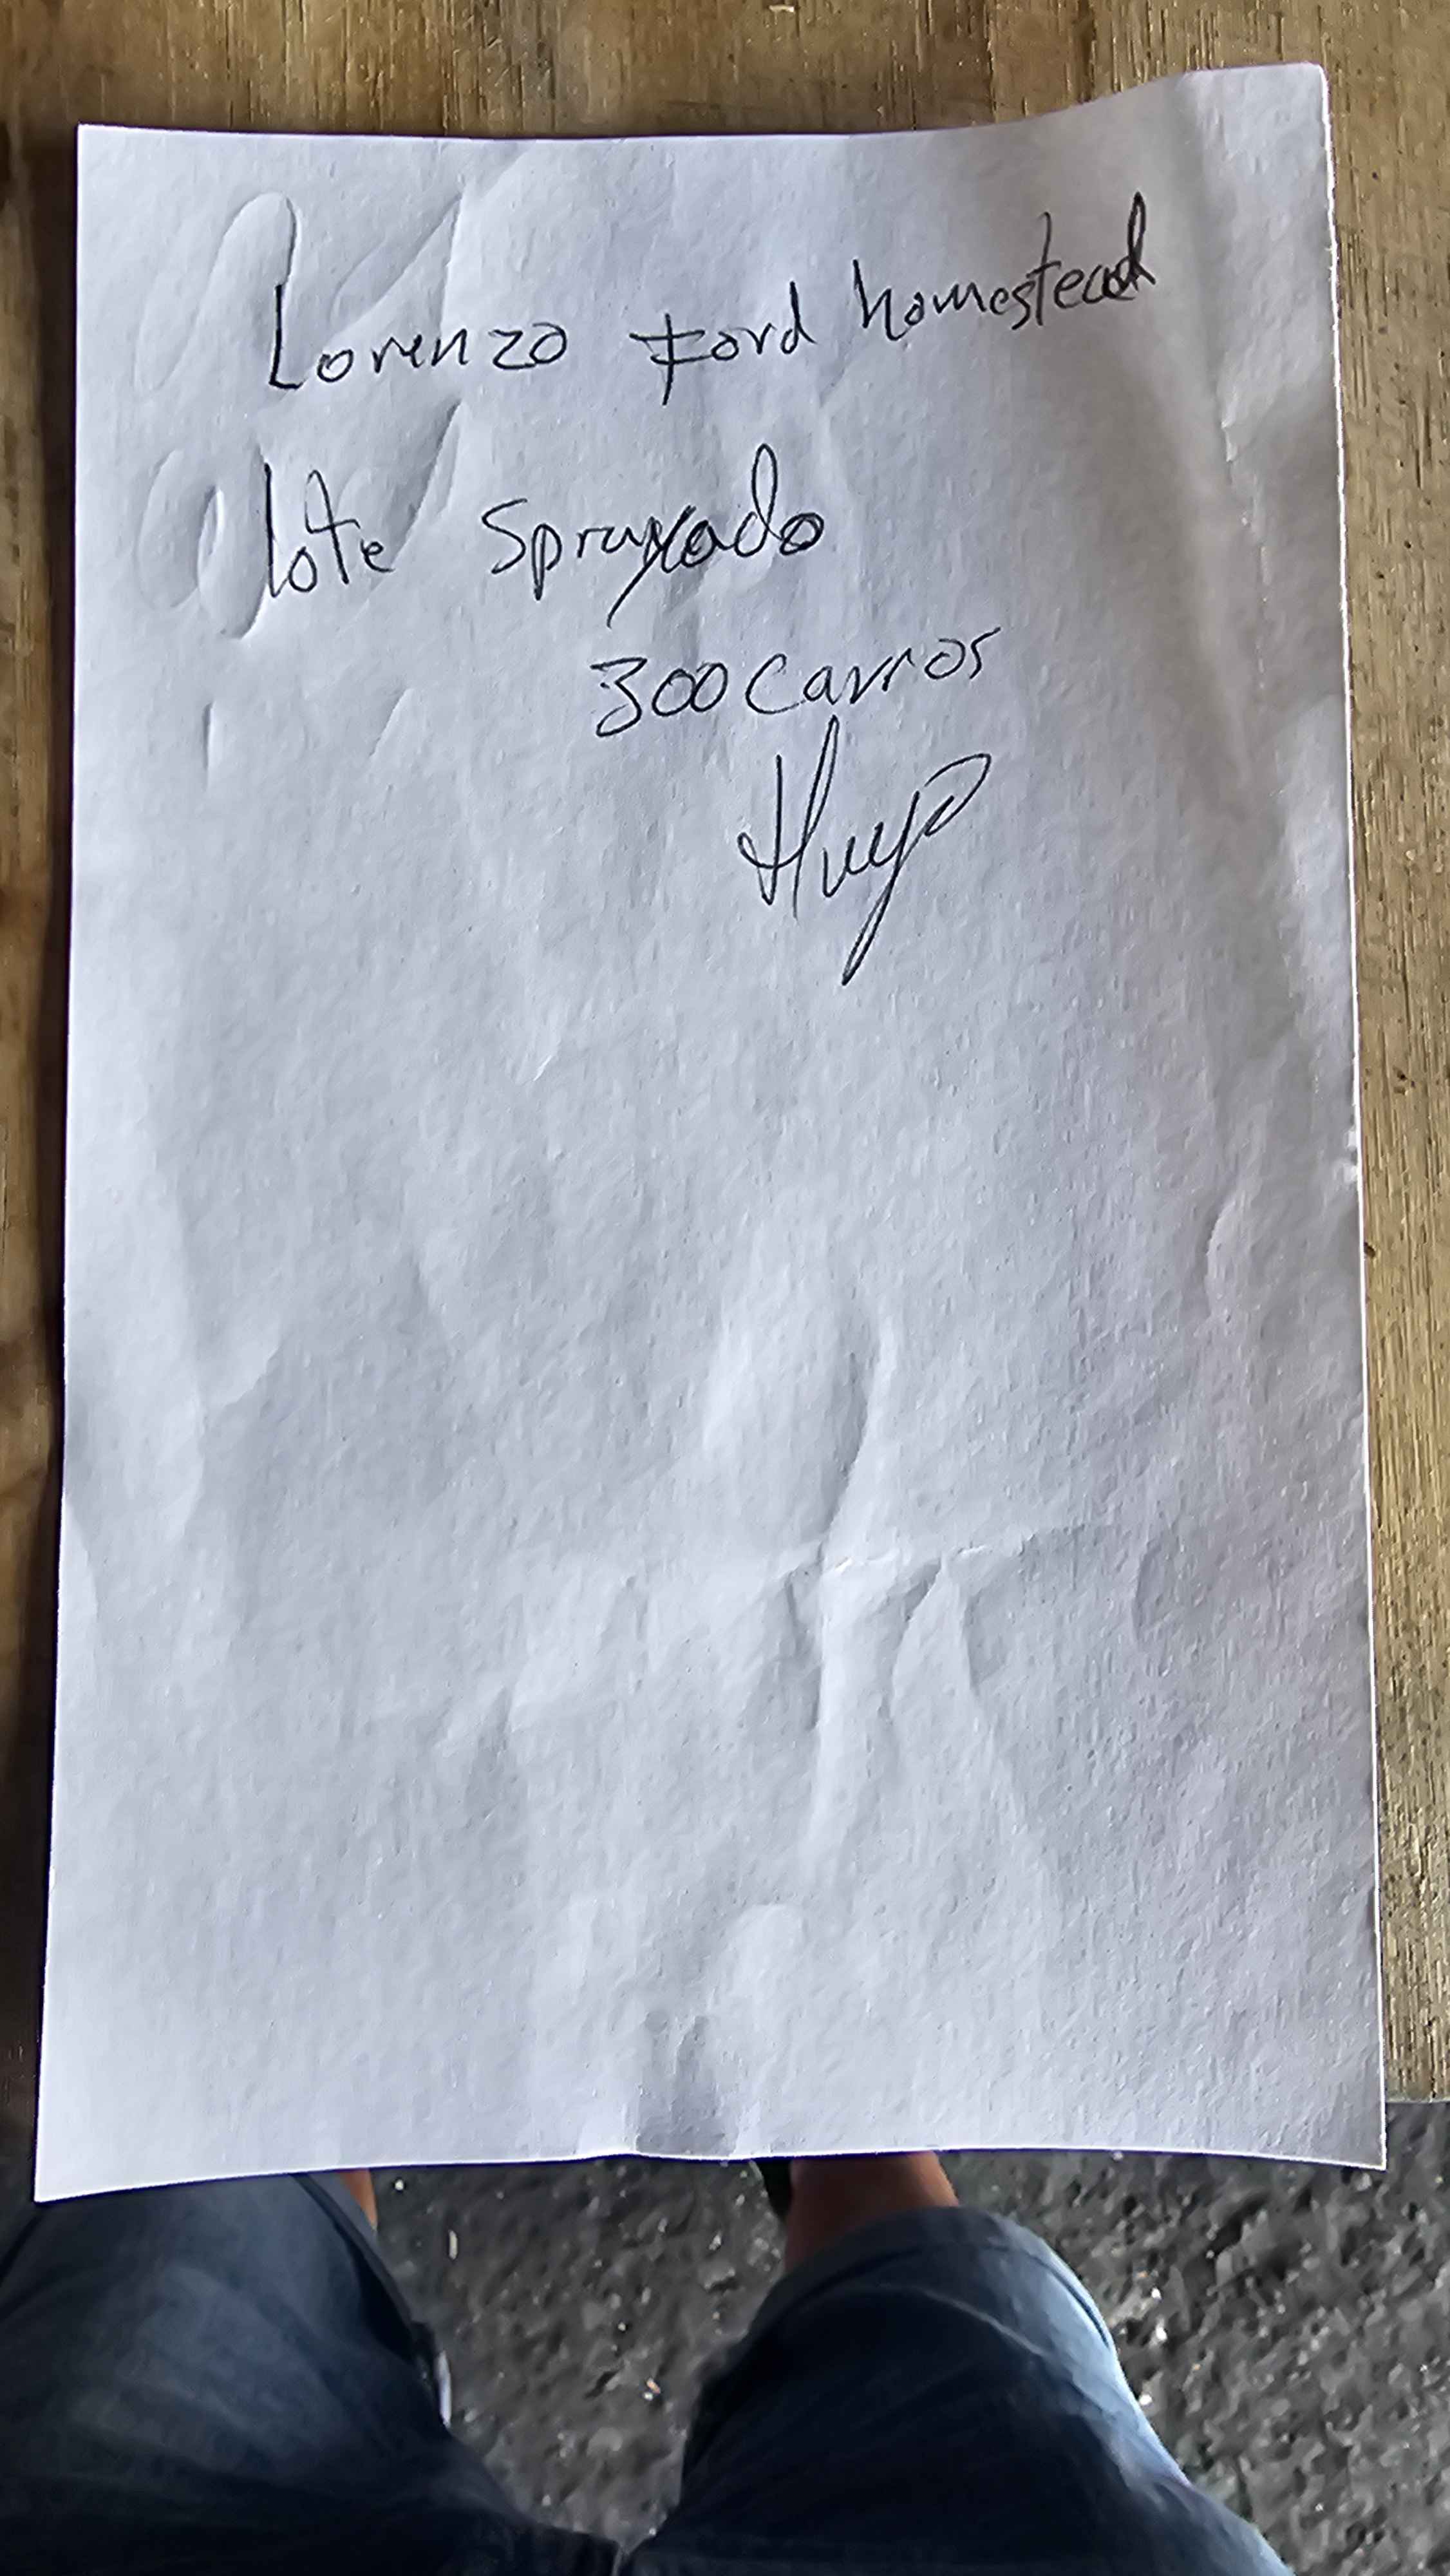 Lorenzo Ford homestead
lote Sprayado
300 Carros
Hugo